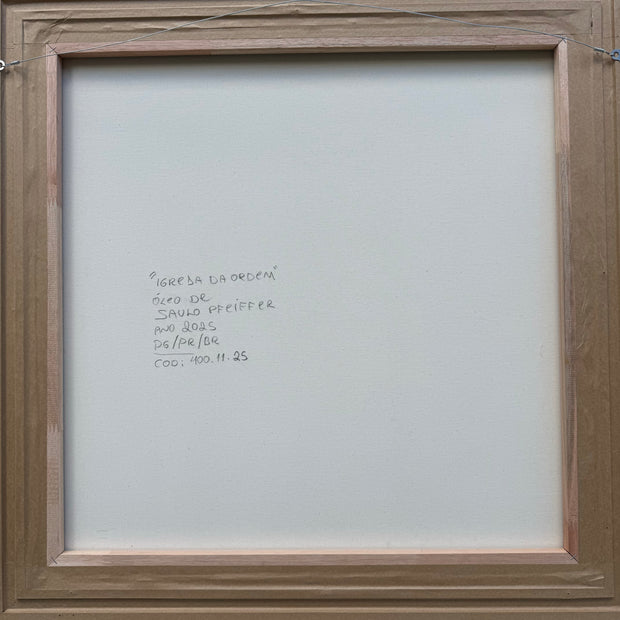 "IGREJA DA ORDEM"
ÓLEO DE
SAULO PFEIFFER
ANO 2025
PG/PR/BR
COD: 400.11.25